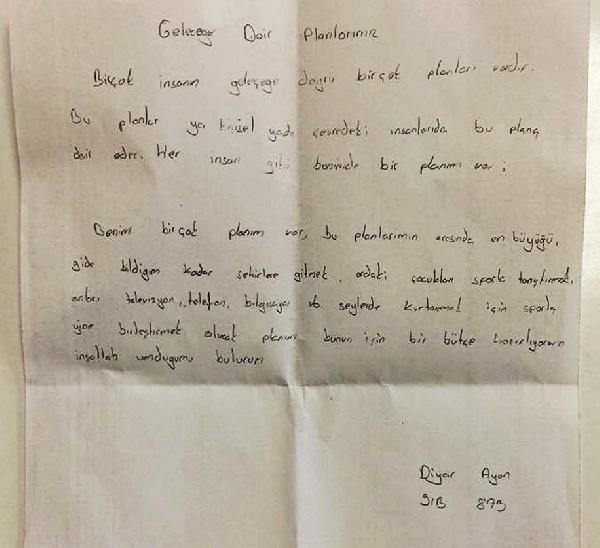 Geleceğe Dair Planlarımız
Birçok insanın geleceğe doğru birçok planları vardır.
Bu planlar ya kişisel yada çevredeki insanlarıda bu plana
dair eder. Her insan gibi benimde bir planım var;
Benim birçok planım var, bu planlarımın arasında en büyüğü,
gide bildiğim kadar şehirlere gitmek, ordaki çocukları sporla tanıştırmak,
onları televizyon, telefon, bilgisayar vb. şeylerde kurtarmak için sporla
birleştirmek olucak planım bunun için bir bütçe hazırlıyorum
inşallah umduğumu bulurum
Diyar Ayan
9/B 873